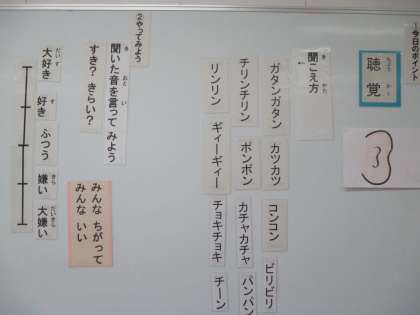 ①今日のポイント
聴覚
ちょう かく
3
聞こえ方
き かた
←
ガタンガタン カツカツ コンコン ビリビリ
チリンチリン ポンポン カチャカチャ パンパン
リンリン ギィーギィー チョキチョキ チーン
②やってみよう
聞いた音を言って みよう
き おと い
すき? きらい?
みんな ちがって
みんな いい
大好き 好き ふつう 嫌い 大嫌い
だいす す きら だいきら